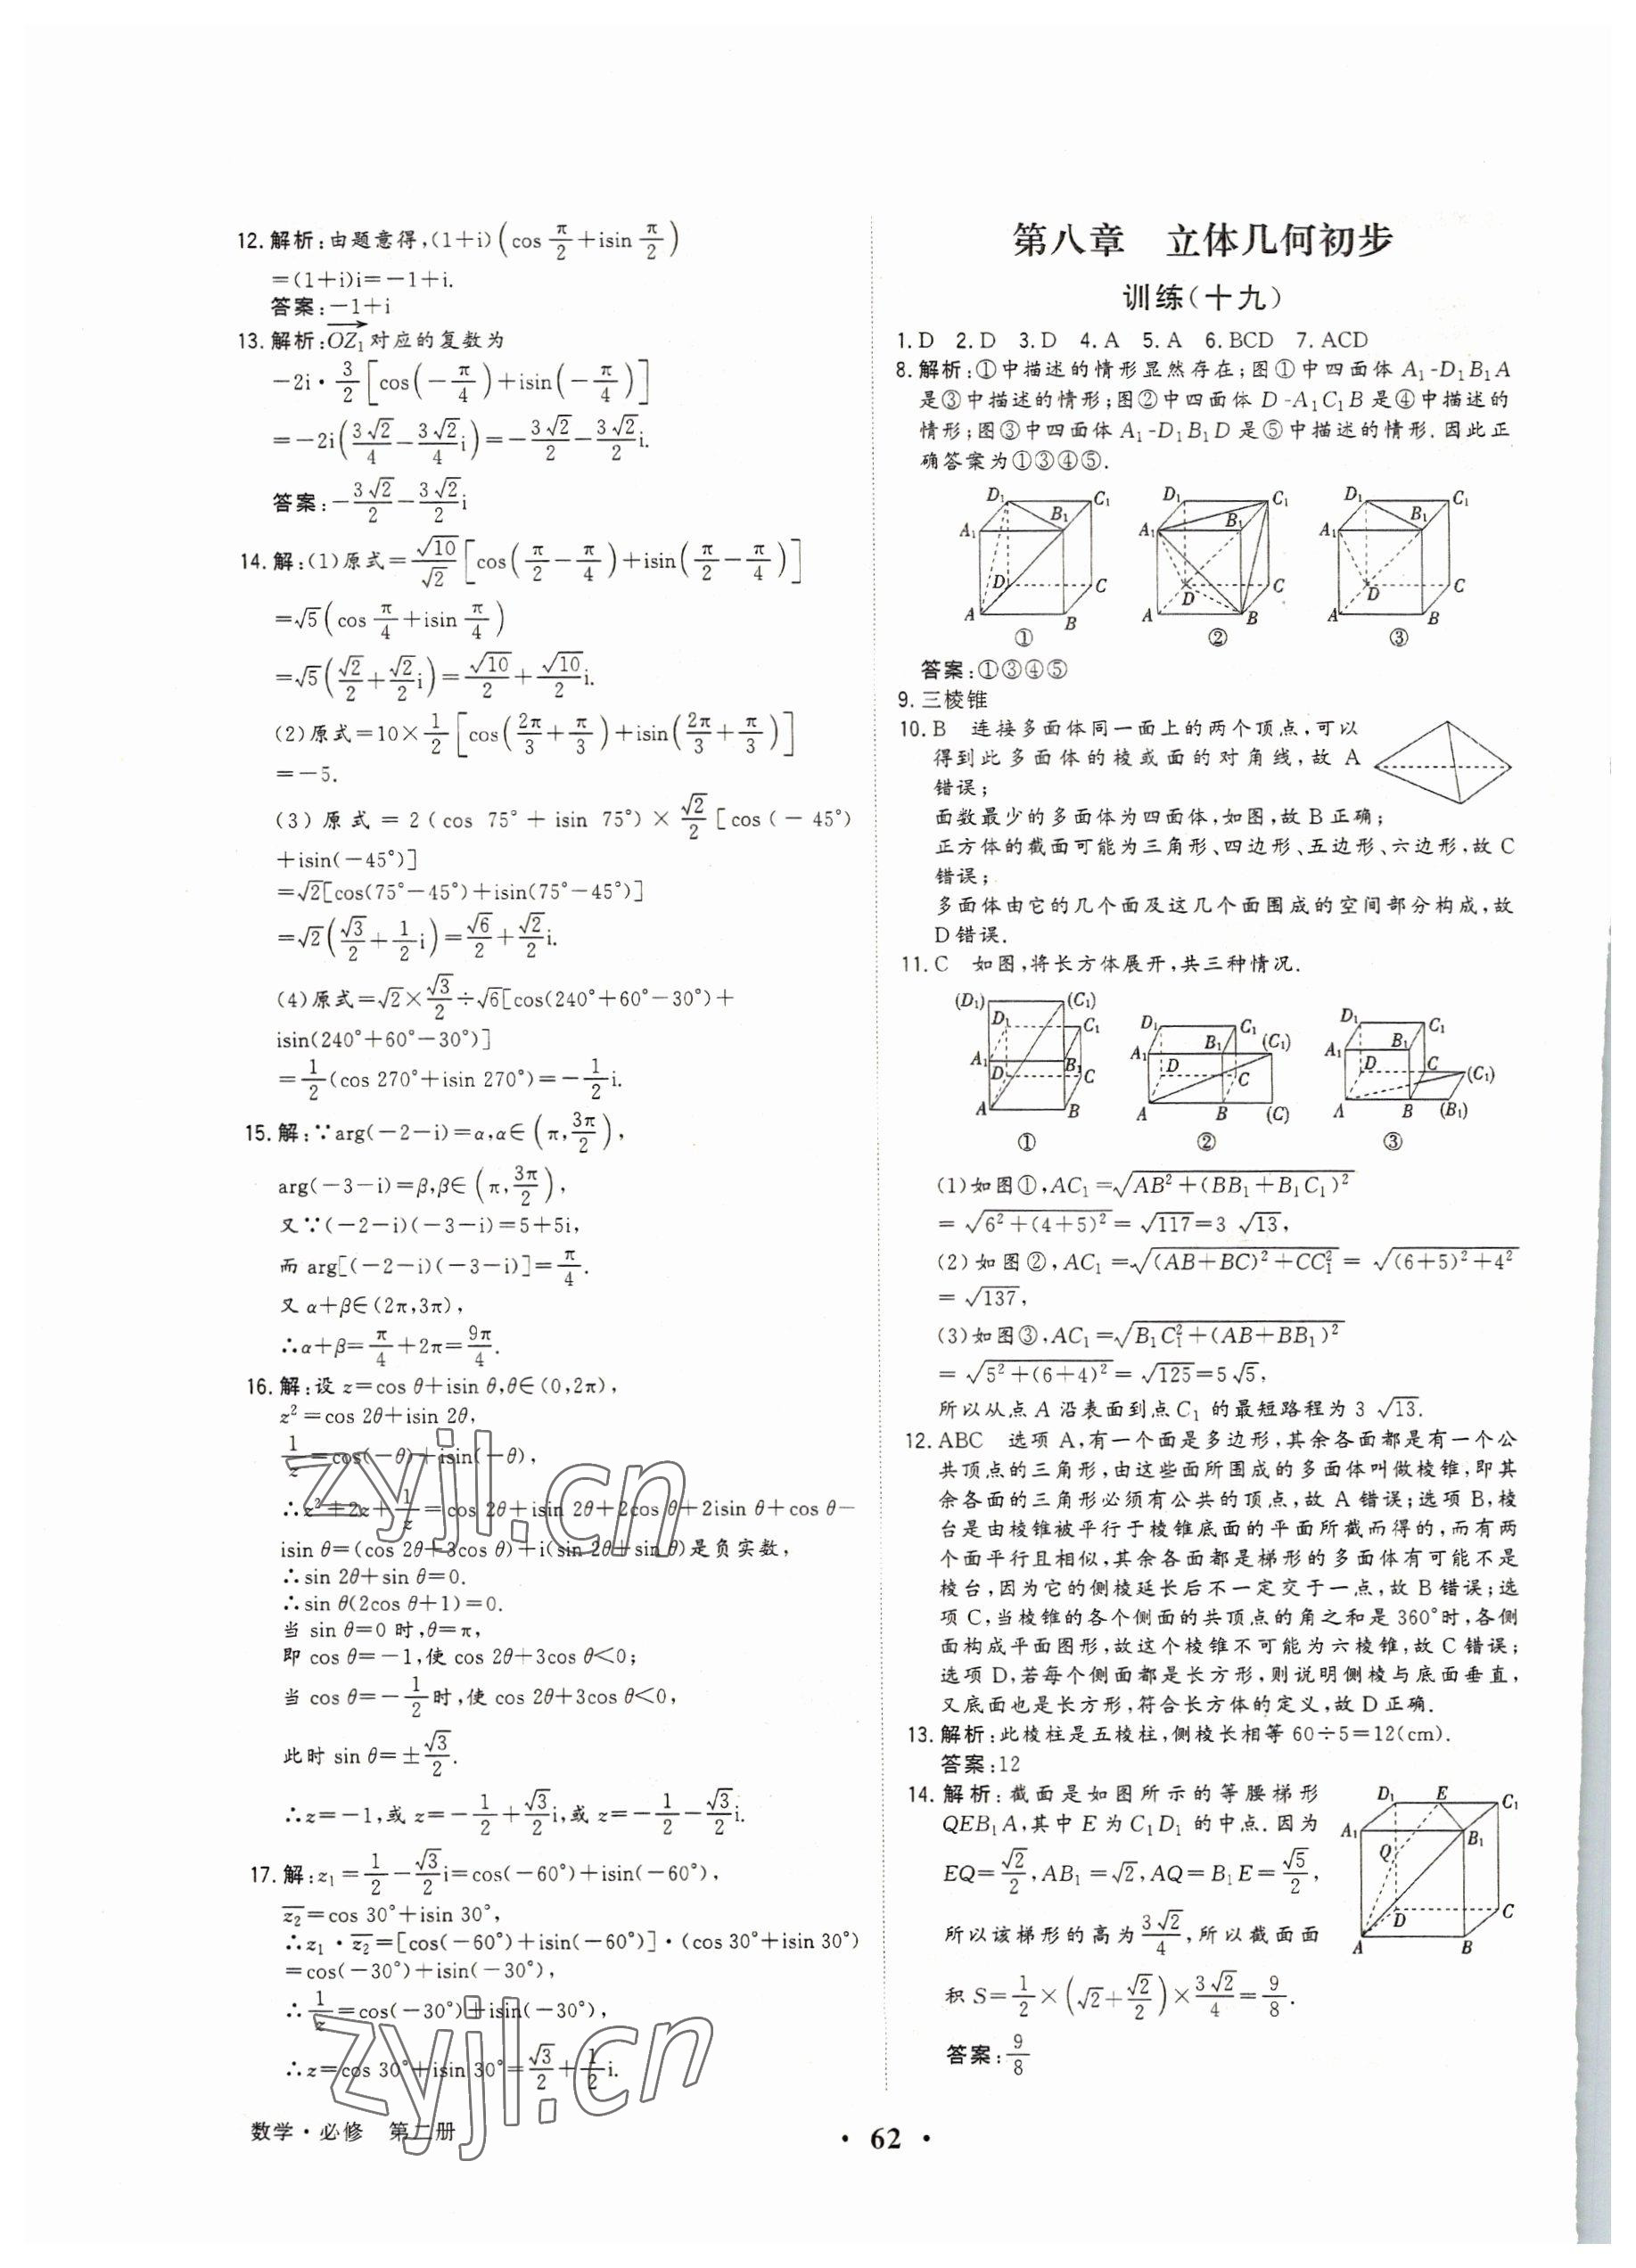 12. 解析:由题意得,(1+i)(cos π/2+isin π/2)
=(1+i)i=-1+i.
答案:-1+i
13. 解析:OZ₁对应的复数为
-2i·3/2[cos(-π/4)+isin(-π/4)]
=-2i(3√2/4-3√2/4 i)=-3√2/2-3√2/2 i.
答案:-3√2/2-3√2/2 i
14. 解:(1)原式=√10/√2[cos(π/2-π/4)+isin(π/2-π/4)]
=√5(cos π/4+isin π/4)
=√5(√2/2+√2/2 i)=√10/2+√10/2 i.
(2)原式=10×1/2[cos(2π/3+π/3)+isin(2π/3+π/3)]
=-5.
(3)原式=2(cos 75°+isin 75°)×√2/2[cos(-45°)
+isin(-45°)]
=√2[cos(75°-45°)+isin(75°-45°)]
=√2(√3/2+1/2 i)=√6/2+√2/2 i.
(4)原式=√2×√3/2÷√6[cos(240°+60°-30°)+
isin(240°+60°-30°)]
=1/2(cos 270°+isin 270°)=-1/2 i.
15. 解:∵arg(-2-i)=α,α∈(π,3π/2),
arg(-3-i)=β,β∈(π,3π/2),
又∵(-2-i)(-3-i)=5+5i,
而 arg[(-2-i)(-3-i)]=π/4.
又 α+β∈(2π,3π),
∴α+β=π/4+2π=9π/4.
16. 解:设 z=cos θ+isin θ,θ∈(0,2π),
z²=cos 2θ+isin 2θ,
1/z=cos(-θ)+isin(-θ),
∴z²+2z+1/z=cos 2θ+isin 2θ+2cos θ+2isin θ+cos θ-
isin θ=(cos 2θ+3cos θ)+i(sin 2θ+sin θ)是负实数,
∴sin 2θ+sin θ=0.
∴sin θ(2cos θ+1)=0.
当 sin θ=0 时,θ=π,
即 cos θ=-1,使 cos 2θ+3cos θ<0;
当 cos θ=-1/2时,使 cos 2θ+3cos θ<0,
此时 sin θ=±√3/2.
∴z=-1,或 z=-1/2+√3/2 i,或 z=-1/2-√3/2 i.
17. 解:z₁=1/2-√3/2 i=cos(-60°)+isin(-60°),
z̅₂=cos 30°+isin 30°,
∴z₁·z̅₂=[cos(-60°)+isin(-60°)]·(cos 30°+isin 30°)
=cos(-30°)+isin(-30°),
∴1/z=cos(-30°)+isin(-30°),
∴z=cos 30°+isin 30°=√3/2+1/2 i.
第八章 立体几何初步
训练(十九)
1. D 2. D 3. D 4. A 5. A 6. BCD 7. ACD
8. 解析:①中描述的情形显然存在;图①中四面体 A₁-D₁B₁A
是③中描述的情形;图②中四面体 D-A₁C₁B 是④中描述的
情形;图③中四面体 A₁-D₁B₁D 是⑤中描述的情形.因此正
确答案为①③④⑤.
D₁ C₁ A₁ B₁ D C A B ①
D₁ C₁ A₁ B₁ D C A B ②
D₁ C₁ A₁ B₁ D C A B ③
答案:①③④⑤
9. 三棱锥
10. B 连接多面体同一面上的两个顶点,可以
得到此多面体的棱或面的对角线,故 A
错误;
面数最少的多面体为四面体,如图,故 B 正确;
正方体的截面可能为三角形、四边形、五边形、六边形,故 C
错误;
多面体由它的几个面及这几个面围成的空间部分构成,故
D 错误.
11. C 如图,将长方体展开,共三种情况.
(D₁) (C₁) D₁ C₁ A₁ B₁ D C A B ①
D₁ C₁ (C₁) A₁ B₁ D C A B (C) ②
D₁ C₁ A₁ B₁ D C (C₁) A B (B₁) ③
(1)如图①,AC₁=√(AB²+(BB₁+B₁C₁)²)
=√(6²+(4+5)²)=√117=3√13,
(2)如图②,AC₁=√((AB+BC)²+CC₁²)=√((6+5)²+4²)
=√137,
(3)如图③,AC₁=√(B₁C₁²+(AB+BB₁)²)
=√(5²+(6+4)²)=√125=5√5,
所以从点 A 沿表面到点 C₁ 的最短路程为 3√13.
12. ABC 选项 A,有一个面是多边形,其余各面都是有一个公
共顶点的三角形,由这些面所围成的多面体叫做棱锥,即其
余各面的三角形必须有公共的顶点,故 A 错误;选项 B,棱
台是由棱锥被平行于棱锥底面的平面所截而得的,而有两
个面平行且相似,其余各面都是梯形的多面体有可能不是
棱台,因为它的侧棱延长后不一定交于一点,故 B 错误;选
项 C,当棱锥的各个侧面的共顶点的角之和是 360°时,各侧
面构成平面图形,故这个棱锥不可能为六棱锥,故 C 错误;
选项 D,若每个侧面都是长方形,则说明侧棱与底面垂直,
又底面也是长方形,符合长方体的定义,故 D 正确.
13. 解析:此棱柱是五棱柱,侧棱长相等 60÷5=12(cm).
答案:12
14. 解析:截面是如图所示的等腰梯形
QEB₁A,其中 E 为 C₁D₁ 的中点.因为
EQ=√2/2,AB₁=√2,AQ=B₁E=√5/2,
所以该梯形的高为3√2/4,所以截面面
积 S=1/2×(√2+√2/2)×3√2/4=9/8.
D₁ E C₁ A₁ B₁ Q D C A B
答案:9/8
zyjl.cn
zyjl.cn
数学·必修 第二册
· 62 ·